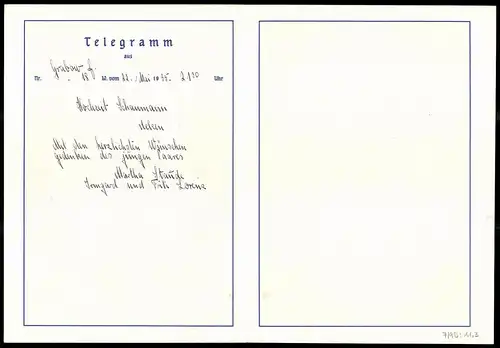 Telegramm
aus
Grabow
Nr. 18 W. vom 22. Mai 1935. 2130 Uhr
Hochzeit Schaumann
Mit den herzlichsten Wünschen
gedenken des jungen Paares
Martha Staude
Irmgard und Fritz Lorenz